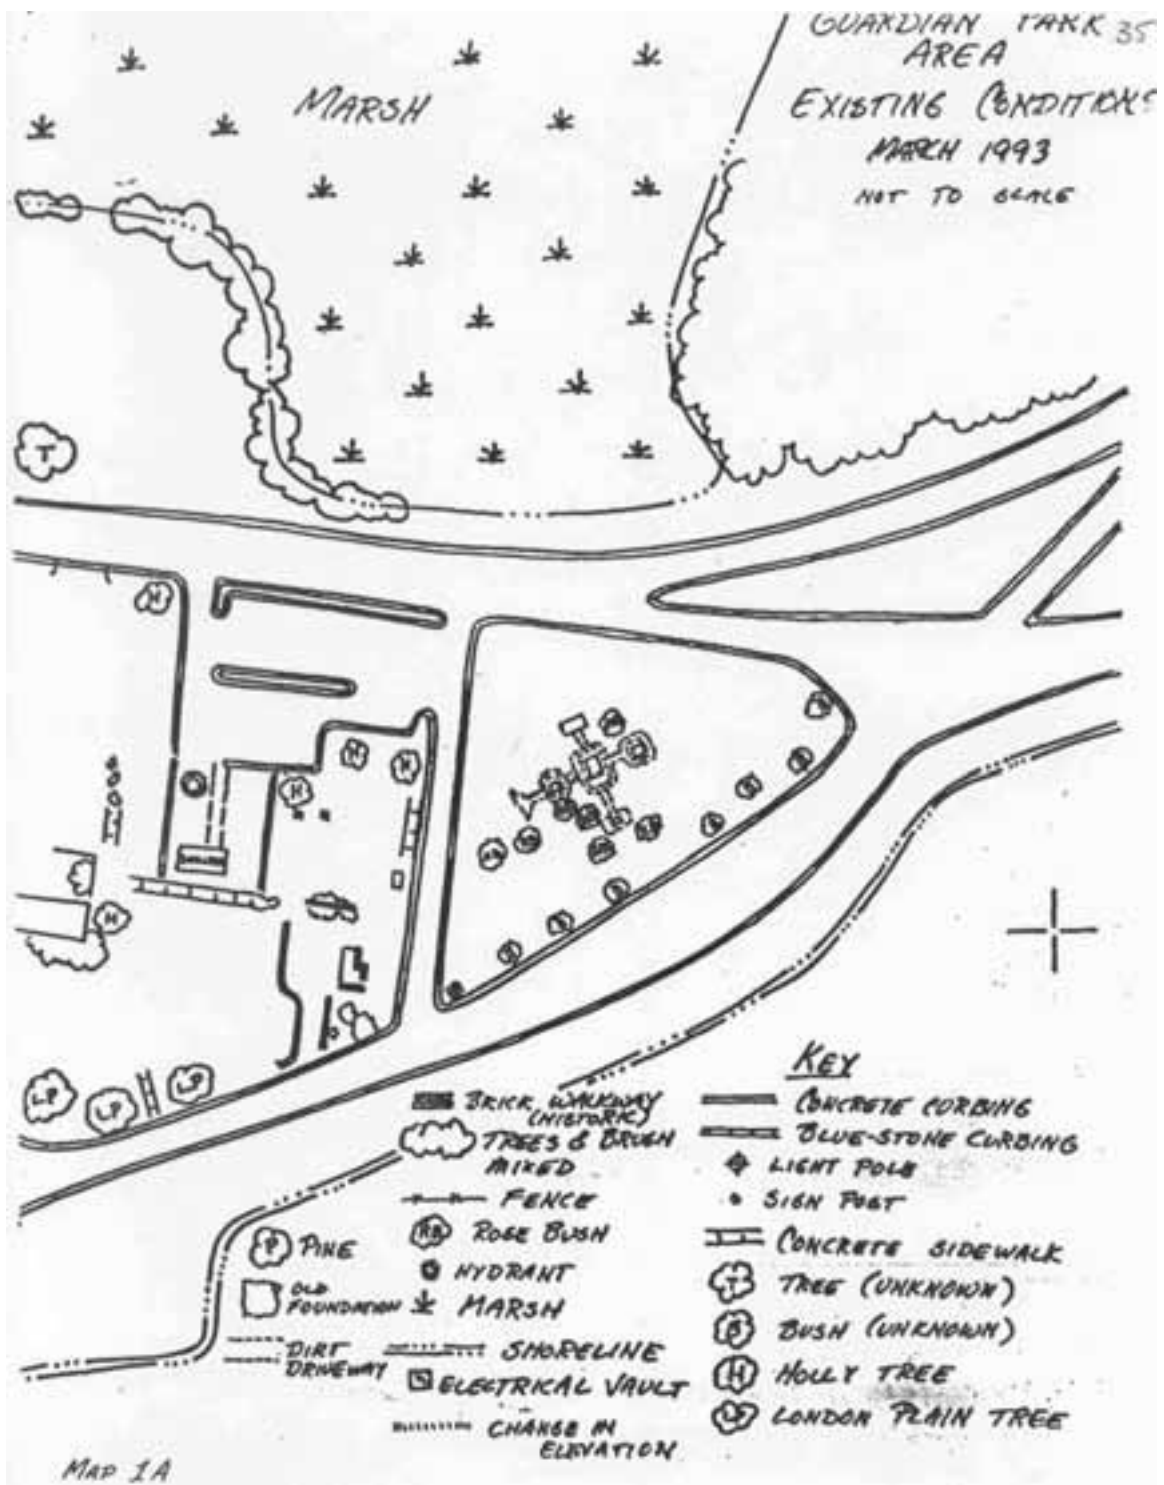 GUARDIAN PARK 35
AREA
EXISTING CONDITIONS
MARCH 1993
NOT TO SCALE
MARSH
T
H
H
H
H
H
LP
LP
LP
KEY
BRICK WALKWAY
(HISTORIC)
TREES & BRUSH
MIXED
FENCE
RB ROSE BUSH
HYDRANT
MARSH
SHORELINE
ELECTRICAL VAULT
CHANGE IN
ELEVATION
P PINE
OLD
FOUNDATION
DIRT
DRIVEWAY
CONCRETE CURBING
BLUE-STONE CURBING
LIGHT POLE
SIGN POST
CONCRETE SIDEWALK
T TREE (UNKNOWN)
B BUSH (UNKNOWN)
H HOLLY TREE
LP LONDON PLAIN TREE
MAP 1A